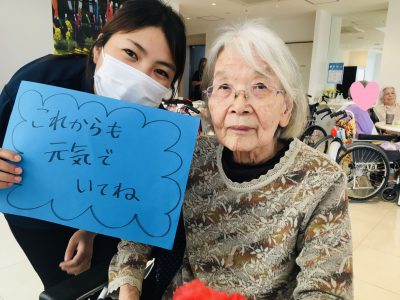 これからも
元気で
いてね